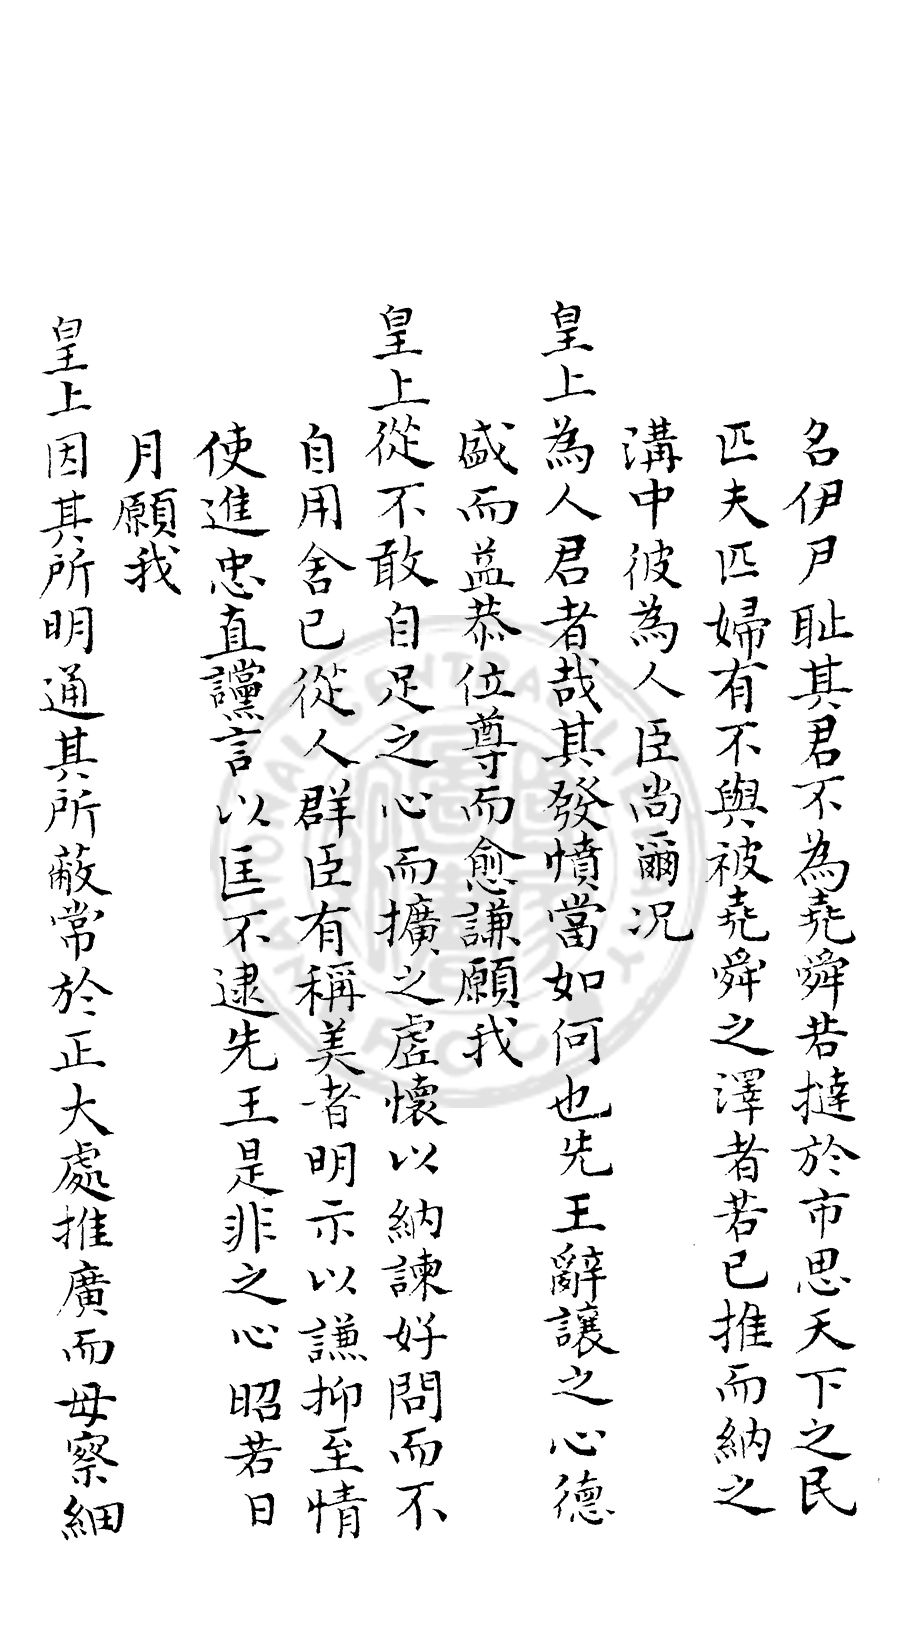 名伊尹耻其君不為堯舜若撻於市思天下之民
匹夫匹婦有不與被堯舜之澤者若已推而納之
溝中彼為人臣尚爾况
皇上為人君者哉其發憤當如何也先王辭讓之心德
盛而益恭位尊而愈謙願我
皇上從不敢自足之心而擴之虛懷以納諫好問而不
自用舍已從人群臣有稱美者明示以謙抑至情
使進忠直讜言以匡不逮先王是非之心昭若日
月願我
皇上因其所明通其所蔽常於正大處推廣而毋察細